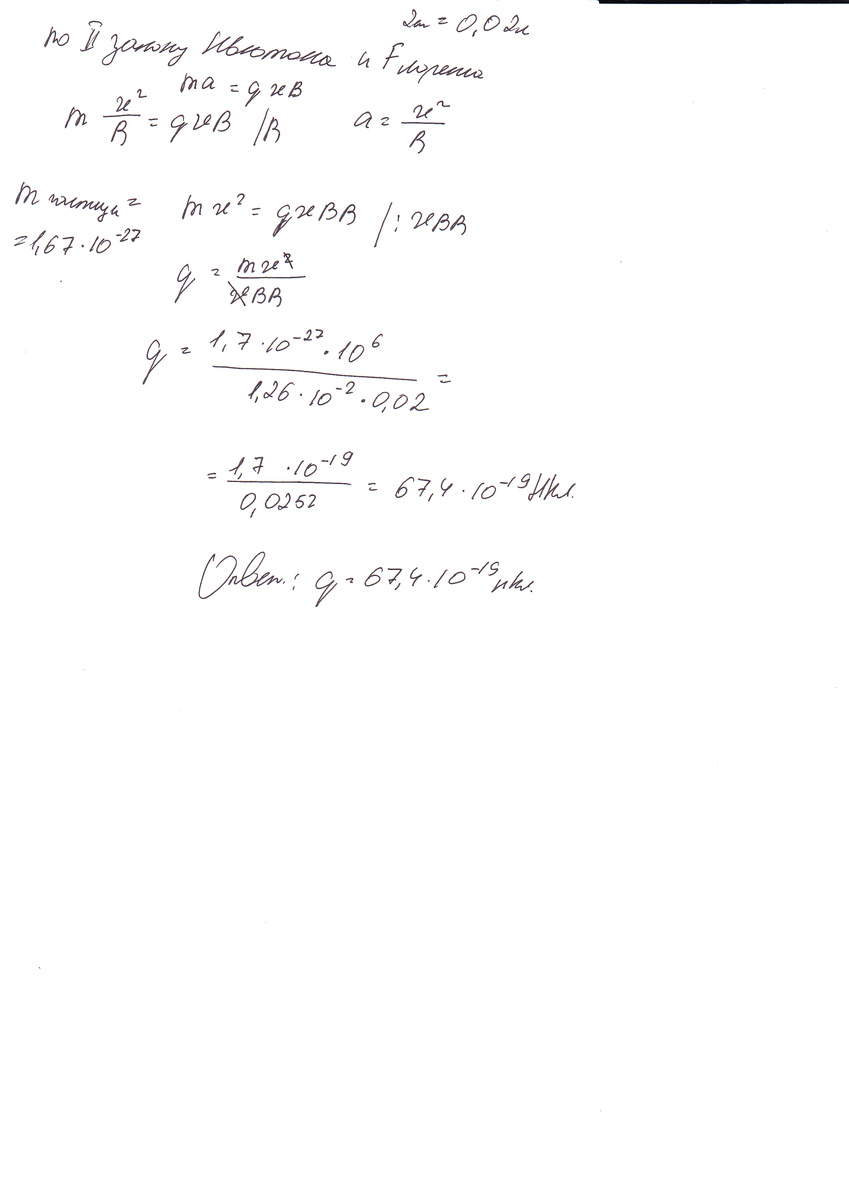 2см = 0,02м
по II закону Ньютона и Fлоренса
ma = qυB
m υ²/R = qυB /R a = υ²/R
m частицы =
= 1,67 · 10⁻²⁷
mυ² = qυBR /: υBR
q = mυ²/υBR
q = 1,7 · 10⁻²⁷ · 10⁶ / 1,26 · 10⁻² · 0,02 =
= 1,7 · 10⁻¹⁹ / 0,0252 = 67,4 · 10⁻¹⁹ Нкл.
Ответ.: q = 67,4 · 10⁻¹⁹ нкл.